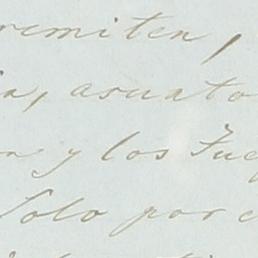 remiten,
a, asunto
n y los Jue
Solo por